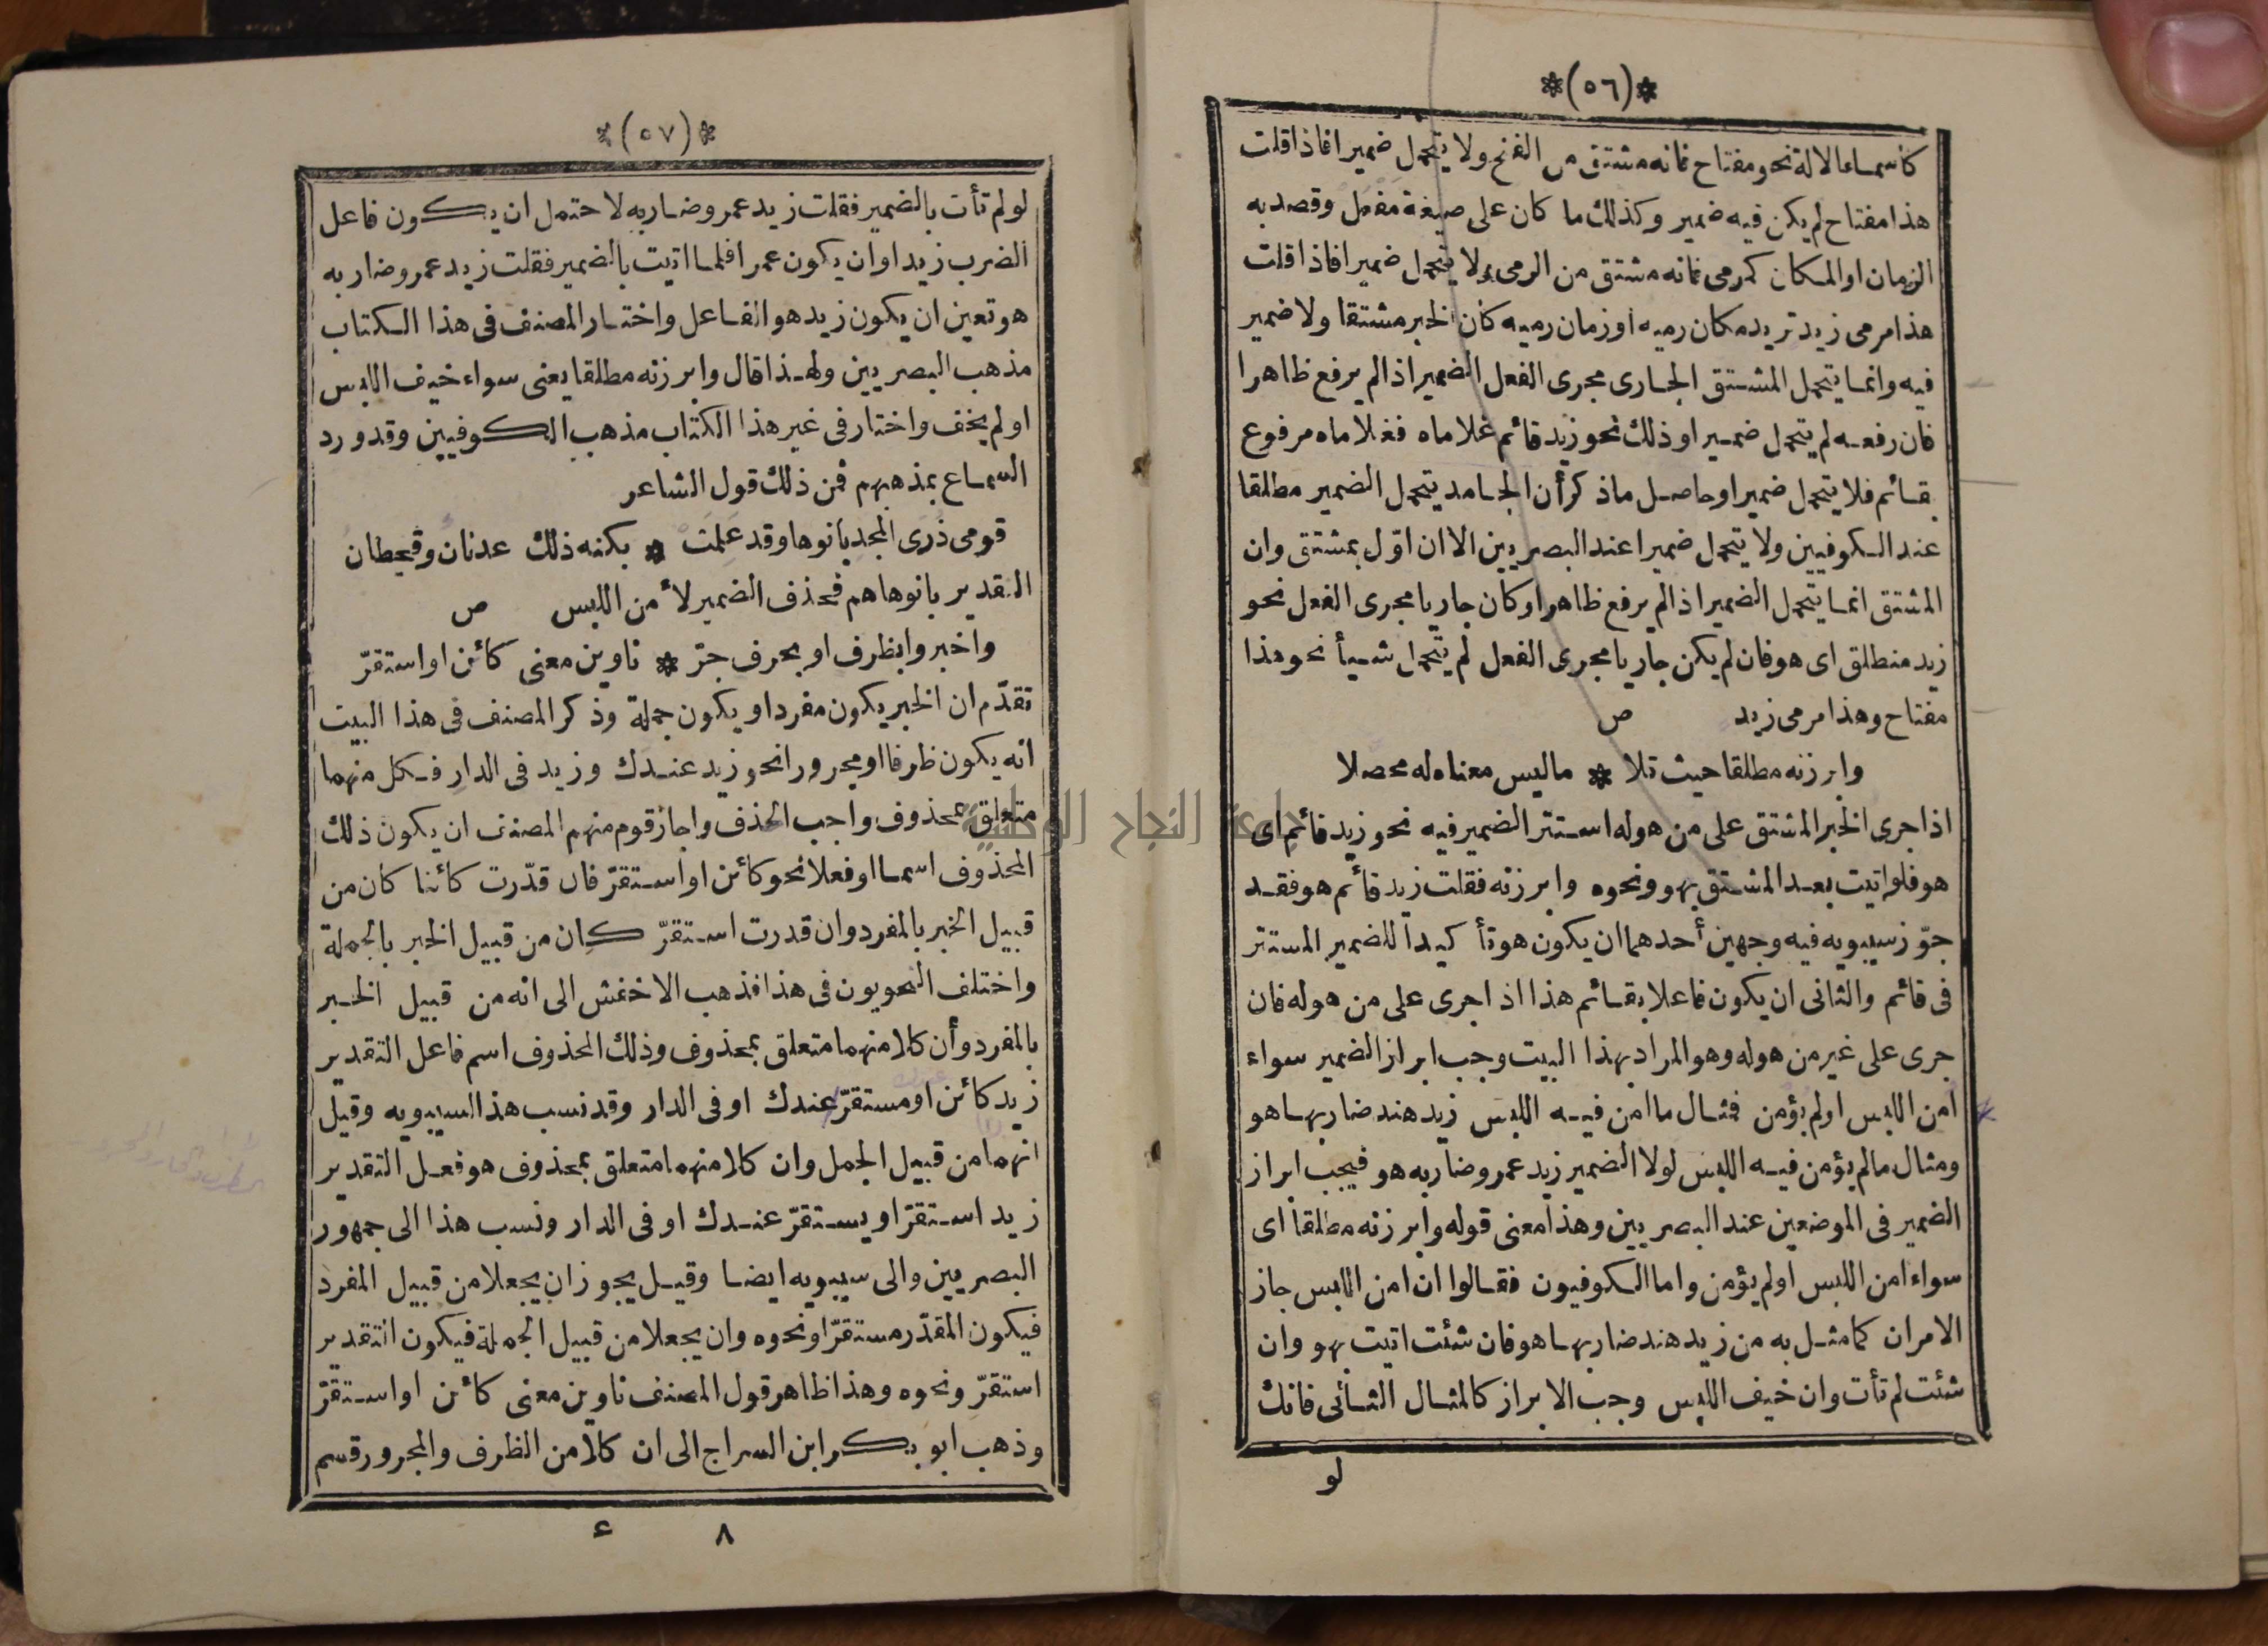 *(٥٦)*
كاسماء الالة نحو مفتاح فانه مشتق من الفتح ولا يتحمل ضميرا فاذا قلت
هذا مفتاح لم يكن فيه ضمير وكذلك ما كان على صيغة مفعل وقصد به
الزمان او المكان كرمى فانه مشتق من الرمى ولا يتحمل ضميرا فاذا قلت
هذا مرمى زيد تريد مكان رميه او زمان رميه كان الخبر مشتقا ولا ضمير
فيه وانما يتحمل المشتق الجارى مجرى الفعل الضمير اذا لم يرفع ظاهرا
فان رفعه لم يتحمل ضميرا وذلك نحو زيد قائم غلاماه فغلاماه مرفوع
بقائم فلا يتحمل ضميرا وحاصل ما ذكر أن الجامد يتحمل الضمير مطلقا
عند الكوفيين ولا يتحمل ضميرا عند البصريين الا ان اوّل بمشتق وان
المشتق انما يتحمل الضمير اذا لم يرفع ظاهرا وكان جاريا مجرى الفعل نحو
زيد منطلق اى هو فان لم يكن جاريا مجرى الفعل لم يتحمل شيأ نحو هذا
مفتاح وهذا مرمى زيد ص
وابرزنه مطلقا حيث تلا * ما ليس معناه له محصلا
اذا جرى الخبر المشتق على من هو له استتر الضمير فيه نحو زيد قائم اى
هو فلو اتيت بعد المشتق بهو ونحوه وابرزته فقلت زيد قائم هو فقد
جوّز سيبويه فيه وجهين أحدهما ان يكون هو تأكيدا للضمير المستتر
فى قائم والثانى ان يكون فاعلا بقائم هذا اذا جرى على من هو له فان
جرى على غير من هو له وهو المراد بهذا البيت وجب ابراز الضمير سواء
أمن اللبس او لم يؤمن فمثال ما امن فيه اللبس زيد هند ضاربها هو
ومثال ما لم يؤمن فيه اللبس لولا الضمير زيد عمرو ضاربه هو فيجب ابراز
الضمير فى الموضعين عند البصريين وهذا معنى قوله وابرزنه مطلقا اى
سواء امن اللبس او لم يؤمن واما الكوفيون فقالوا ان امن اللبس جاز
الامران كما مثل به من زيد هند ضاربها هو فان شئت اتيت بهو وان
شئت لم تأت وان خيف اللبس وجب الابراز كالمثال الثانى فانك
لو
*(٥٧)*
لو لم تأت بالضمير فقلت زيد عمرو ضاربه لاحتمل ان يكون فاعل
الضرب زيدا وان يكون عمرا فلما اتيت بالضمير فقلت زيد عمرو ضاربه
هو تعين ان يكون زيد هو الفاعل واختار المصنف فى هذا الكتاب
مذهب البصريين ولهذا قال وابرزنه مطلقا يعنى سواء خيف اللبس
او لم يخف واختار فى غير هذا الكتاب مذهب الكوفيين وقد ورد
السماع بمذهبهم فمن ذلك قول الشاعر
قومى ذُرَى المجد بانوها وقد عَلِمَتْ * بكنه ذلك عدنان وقحطان
التقدير بانوها هم فحذف الضمير لأمن اللبس ص
واخبروا بظرف او بحرف جرّ * ناوين معنى كائن او استقرّ
تقدّم ان الخبر يكون مفردا ويكون جملة وذكر المصنف فى هذا البيت
انه يكون ظرفا او مجرورا نحو زيد عندك وزيد فى الدار فكل منهما
متعلق بمحذوف واجب الحذف واجاز قوم منهم المصنف ان يكون ذلك
المحذوف اسما او فعلا نحو كائن او استقرّ فان قدّرت كائنا كان من
قبيل الخبر بالمفرد وان قدرت استقرّ كان من قبيل الخبر بالجملة
واختلف النحويون فى هذا فذهب الاخفش الى انه من قبيل الخبر
بالمفرد وأن كلا منهما متعلق بمحذوف وذلك المحذوف اسم فاعل التقدير
زيد كائن او مستقرّ عندك او فى الدار وقد نسب هذا لسيبويه وقيل
انهما من قبيل الجمل وان كلا منهما متعلق بمحذوف هو فعل التقدير
زيد استقرّ او يستقرّ عندك او فى الدار ونسب هذا الى جمهور
البصريين والى سيبويه ايضا وقيل يجوز ان يجعلا من قبيل المفرد
فيكون المقدّر مستقرّا ونحوه وان يجعلا من قبيل الجملة فيكون التقدير
استقرّ ونحوه وهذا ظاهر قول المصنف ناوين معنى كائن او استقرّ
وذهب ابو بكر ابن السراج الى ان كلا من الظرف والمجرور قسم
٨ ع
جامعة النجاح الوطنية